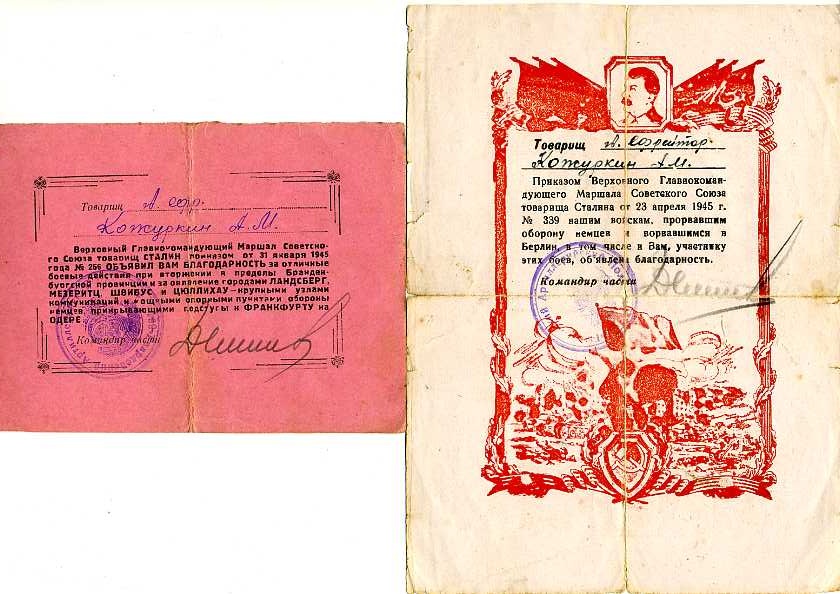 Товарищ гв. ефр.
Кожуркин А.М.
Верховный Главнокомандующий Маршал Советско-
го Союза товарищ СТАЛИН приказом от 31 января 1945
года № 256 ОБЪЯВИЛ ВАМ БЛАГОДАРНОСТЬ за отличные
боевые действия при вторжении в пределы Бранден-
бургской провинции и за овладение городами ЛАНДСБЕРГ,
МЕЗЕРИТЦ, ШВИБУС и ЦЮЛЛИХАУ – крупными узлами
коммуникаций и мощными опорными пунктами обороны
немцев, прикрывающими подступы к ФРАНКФУРТУ на
ОДЕРЕ.
Командир части
Товарищ гв. ефрейтор.
Кожуркин А.М.
Приказом Верховного Главнокоман-
дующего Маршала Советского Союза
товарища Сталина от 23 апреля 1945 г.
№ 339 нашим войскам, прорвавшим
оборону немцев и ворвавшимся в
Берлин, в том числе и Вам, участнику
этих боев, об'явлена благодарность.
Командир части